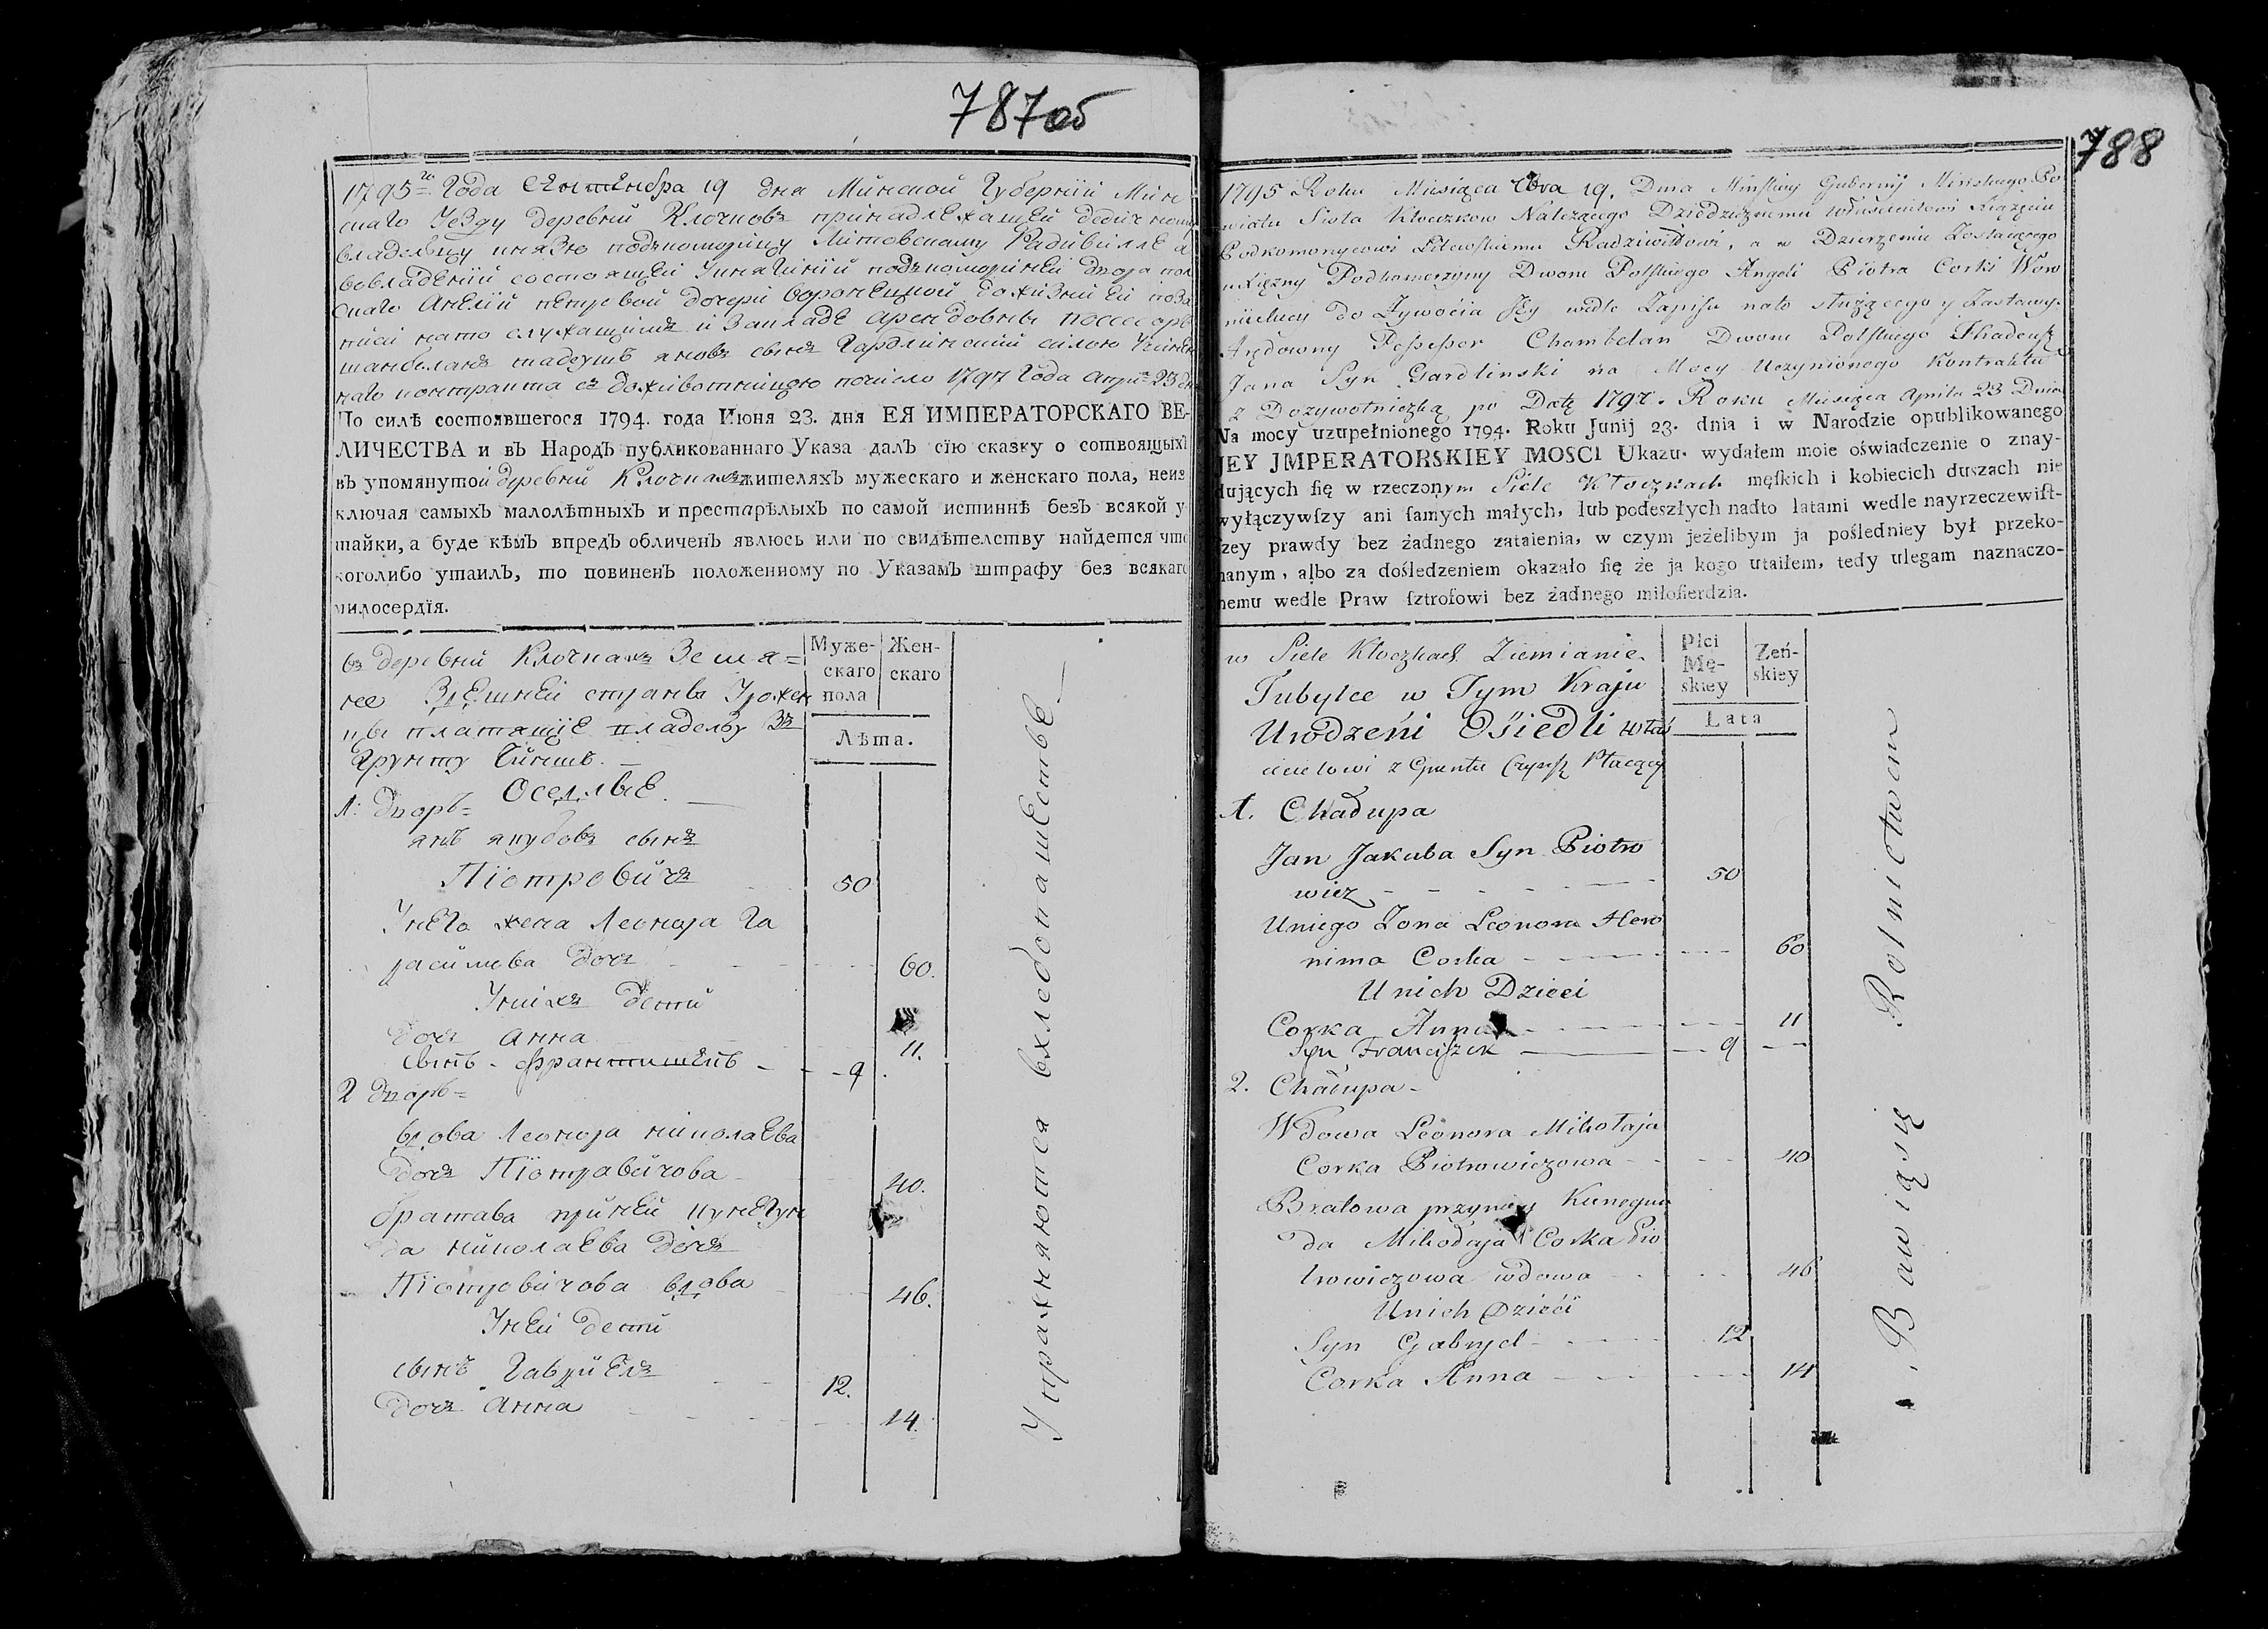 787об
1795го Года Сентенбра 19 дня Минской Губернии Мин
скаго Уезду деревни Клочковъ принадлежащей дедичному
владельцу князю подкоморищу Литовскому Радивилле а
вовладении состоящей Укнягинии подкоморжней двора пол
скаго Анелии петровой дочери дожизни ей поза
писи нато служащимъ и Закладе арендовны поссесоръ
шанбеланъ тадеушъ яновъ сынъ Гардлинский силою Учинен
наго контракта съ доживотницою почисло 1797 Года апри 23 дн
По силѣ состоявшегося 1794. года Июня 23. дня ЕЯ ИМПЕРАТОРСКАГО ВЕ-
ЛИЧЕСТВА и въ Народъ публикованнаго Указа далъ сїю сказку о сотвоящыхъ
въ упомянутой деревни Клочкахъ жителяхъ мужескаго и женскаго пола, неиз
ключая самыхъ малолѣтныхъ и престарѣлыхъ по самой истиннѣ безъ всякой у
тайки, а буде кѣмъ впредъ обличенъ явлюсь или по свидѣтелству найдется что
коголибо утаилъ, то повиненъ положенному по Указамъ штрафу без всякаго
милосердїя.
въ деревни Клочкахъ Земя=
нее Здешней страны Урожен
цы платящие владельцу Зъ
Грунту Чиншъ.
Оседлые
Муже-
скаго
пола
Жен-
скаго
Лѣта.
1: Дворъ=
янъ якубовъ сынъ
Піотровичъ 50
Унего жена Леонора Га
расимова дочь 60.
Унихъ дети
дочь анна 11.
сынъ францишекъ 9
2 Дворъ=
вдова Леонора николаева
дочь Піотравичова 40.
братава приней кунегун
да николаева дочь
Піотровичова вдова 46.
Уней дети
сынъ Гавриелъ 12.
дочь Анна 14.
Упражняются вхлебопашестве
788
1795 Roku Miesiąca 7bra 19. Dnia Minskiey Gubernij Minskiego Po
wiatu Sioła Kłoczkow Należącego Dziedzicznemu właścicielowi Xiążęciu
Podkomorzycowi Litewskiemu Radziwiłłowi, a w Dzierżeniu Zostaiącego
u Xiężny Podkomorzyny Dworu Polskiego Angeli Piotra Corki Woro
nieckiey do Żywocia Jey wedle Zapisu nato służącego y Zastawy
Arędowny Possessor Chambelan Dworu Polskiego Thadeusz
Jana Syn Gardlinski na Mocy Uczynionego Kontraktu
z Dożywotniczką po Datę 1797. Roku Miesiąca Aprila 23 Dnia
Na mocy uzupełnionego 1794. Roku Junij 23. dnia i w Narodzie opublikowanego
JEY JMPERATORSKIEY MOSCI Ukazu. wydałem moie oświadczenie o znay-
dujących ſię w rzeczonym Siele Kłoczkach męſkich i kobiecich duszach nie
wyłączywſzy ani ſamych małych, lub podeszłych nadto latami wedle nayrzeczewiſt-
ſzey prawdy bez żadnego zataienia, w czym jeżelibym ja pośledniey był przeko-
nanym, albo za dośledzeniem okazało ſię że ja kogo utaiłem, tedy ulegam naznaczo-
nemu wedle Praw ſztrofowi bez żadnego miłoſierdzia.
w Siele Kłoczkach Ziemianie
Tubylce w Tym Kraju
Urodzeni Osiedli właś
cicielowi z Gruntu Czynsz Płacący
Płci
Mę-
skiey
Zeń-
skiey
Lata
1. Chałupa
Jan Jakuba Syn Piotro
wicz 50
Uniego Żona Leonora Hero
nima Corka 60
Unich Dzieci
Corka Anna 11
Syn Franciszek 9
2. Chałupa
Wdowa Leonora Mikołaja
Corka Piotrowiczowa 40
Bratowa przyniey Kunegun
da Mikołaja Corka Pio
trowiczowa wdowa 46
Unich Dzieci
Syn Gabryel 12
Corka Anna 14
Bawiąsię Rolnictwem